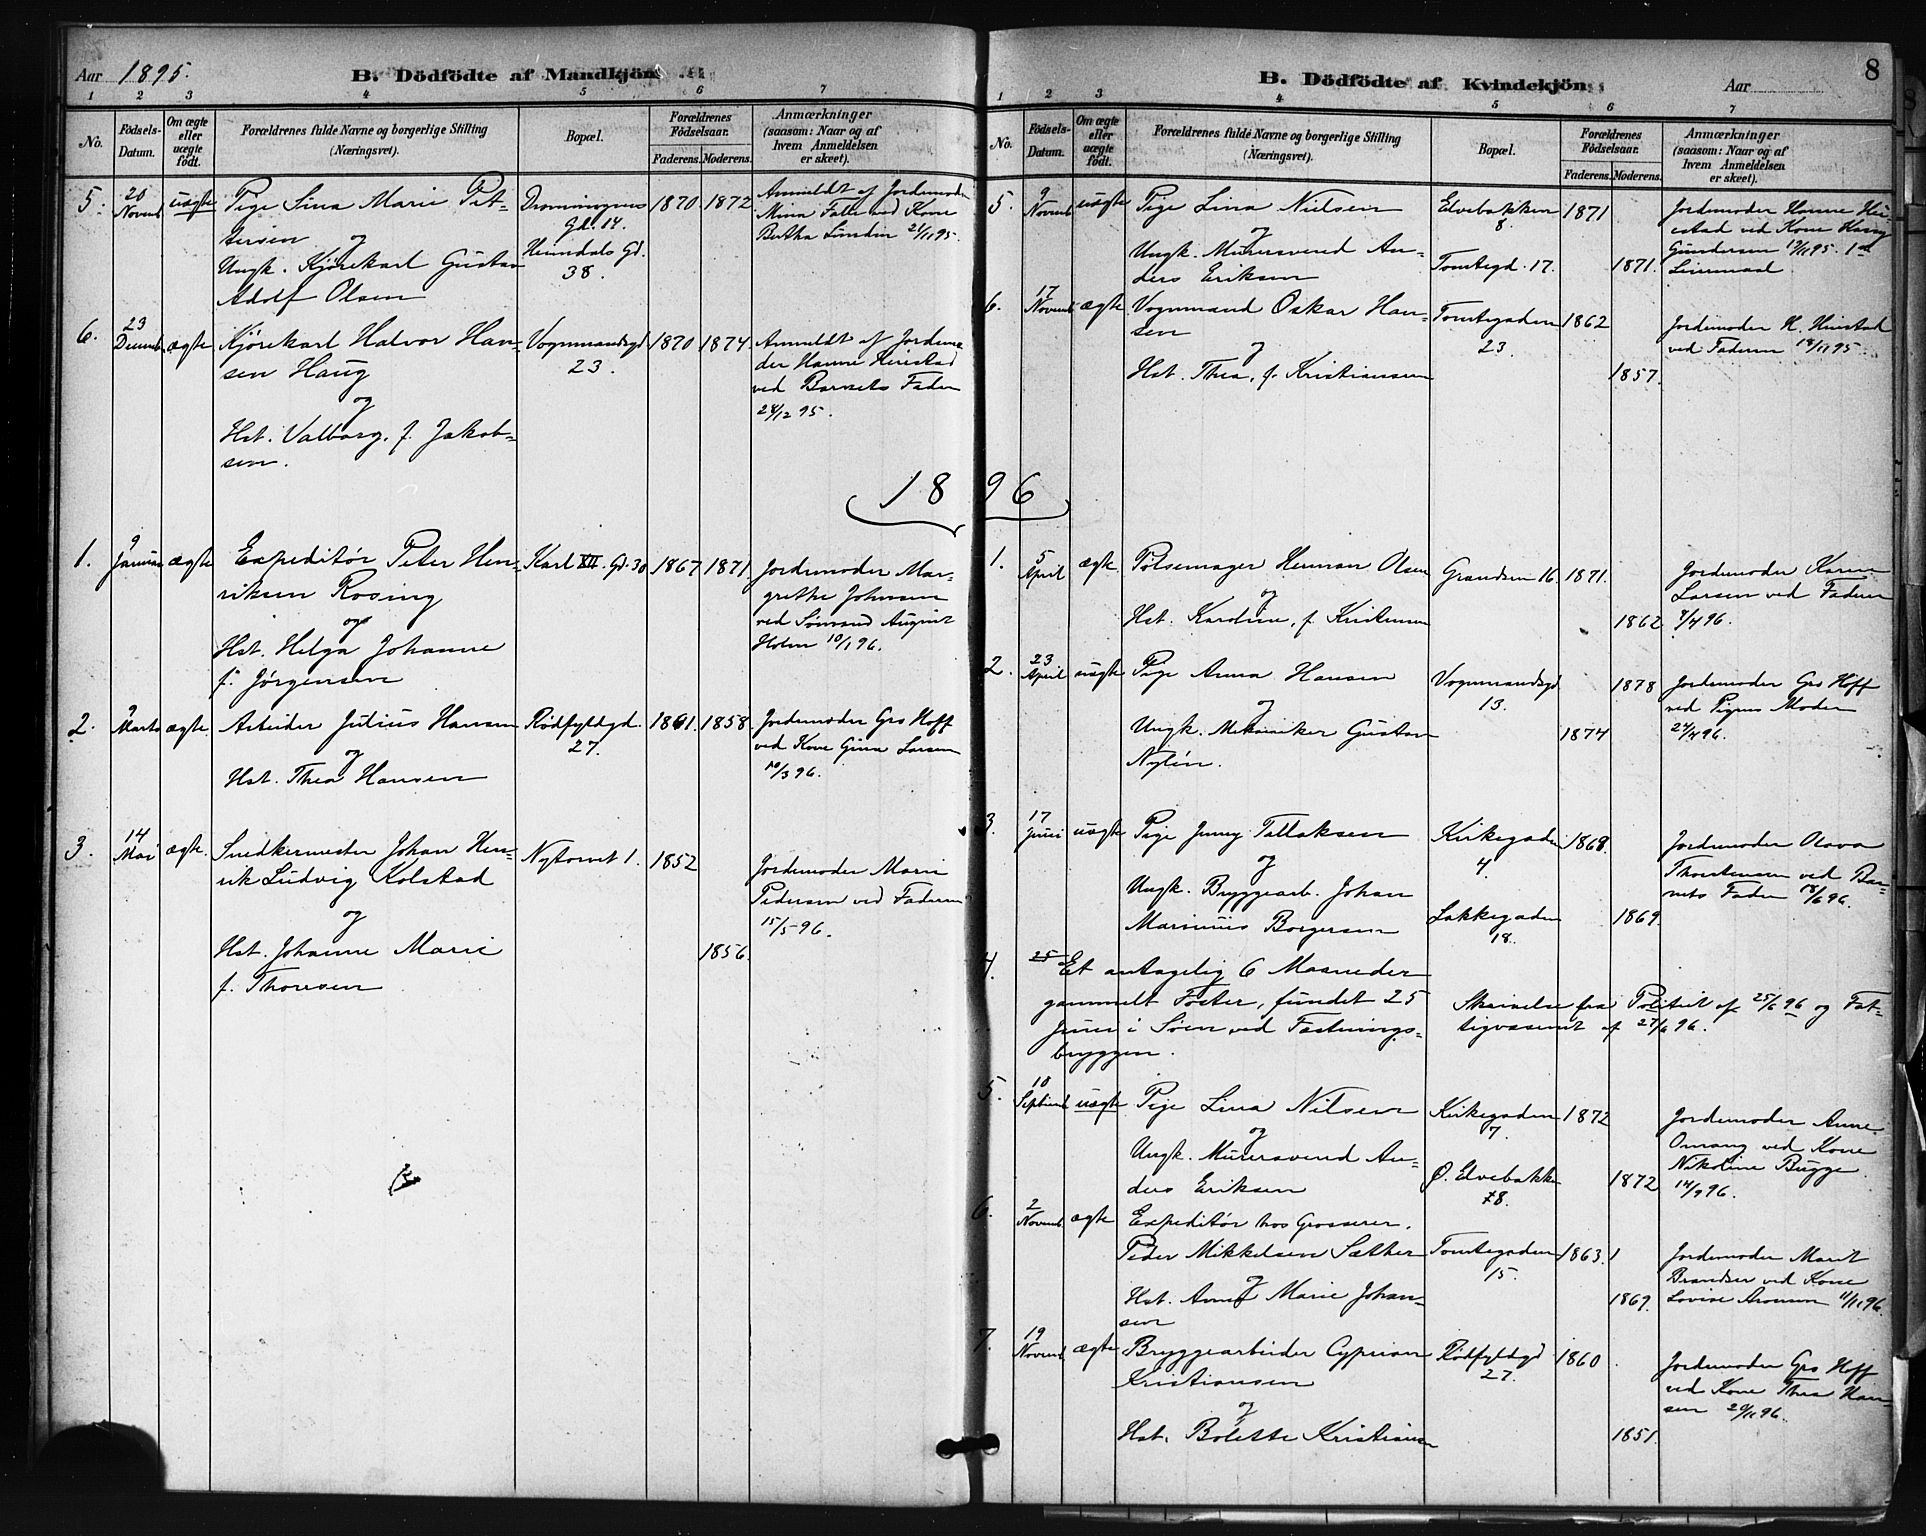 Aar 1895.
B. Dödfödte af Mandkjön
1 2 3 4 5 6 7
No.
Födsels-Datum.
Om ægte eller uægte født.
Forældrenes fulde Navne og borgerlige Stilling
(Næringsvei).
Bopæl.
Forældrenes Födselsaar.
Faderens. Moderens.
Anmærkninger
(saasom: Naar og af
hvem Anmeldelsen
er skeet).
5. 20 Novemb uægte Pige Lina Marie Pet- Dronningens 1870 1872 Anmeldt af Jordemoder
tersen Gd. 14. Mina Falle ved Kone
og Heimdals Gd. Bertha Lundin 21/11 95.
Ungk. Kjørekarl Gustav 38.
Adolf Olsen
6. 23 Decemb. ægte Kjørekarl Halvor Han- Vognmandsgd 1870 1874 Anmeldt af Jordemo
sen Haug 23. der Hanne Heiestad
og ved Barnets Fader
Hst. Valborg, f. Jakob- 24/12 95.
sen.
1896
1. 9 Januar ægte Expeditør Peter Hen- Karl XII. Gd. 30 1867 1871 Jordemoder Mar-
riksen Rosing grethe Johnsen
og ved Sømand August
Hst. Helga Johanne Holm 10/1 96.
f. Jørgensen
2. 9 Marts ægte Arbeider Julius Hansen Rødfyldgd. 1861. 1858 Jordemoder Gro Hoff
og 27. ved Kone Gina Larsen
Hst. Thea Hansen 10/3 96.
3. 14 Mai ægte. Snedkermester Johan Hen- Nytorvet 1. 1852 Jordemoder Marie
rik Ludvig Kolstad Pedersen ved Faderen
og 15/5 96.
Hst. Johanne Marie 1856.
f. Thoresen
8
B. Dödfödte af Kvindekjön
Aar
1 2 3 4 5 6 7
No.
Födsels-Datum.
Om ægte eller uægte født.
Forældrenes fulde Navne og borgerlige Stilling
(Næringsvei).
Bopæl.
Forældrenes Födselsaar.
Faderens. Moderens.
Anmærkninger
(saasom: Naar og af
hvem Anmeldelsen
er skeet).
5. 9 Novemb uægte Pige Lina Nielsen Elvebakken 1871 Jordemoder Hanne Hei-
og 8. estad ved Kone
Ungk. Murersvend An- Tomtegd. 17. 1871. Gundersen 12/11 95.
ders Eriksen
6. 17 Novemb ægte Vognmand Oskar Han- Tomtegaden 1862 Jordemoder H. Heiestad
sen 23. ved Faderen 18/11 95.
og
Hst. Thea, f. Kristiansen 1857.
1. 5 April ægte Pølsemager Herman Olsen Grændsen 16. 1871. Jordemoder Karen
og Larsen ved Faderen
Hst. Karoline, f. Kristensen 1862 7/4 96.
2. 23 April uægte Pige Anna Hansen Vognmandsgd 1878 Jordemoder Gro Hoff
og 13. ved Pigens Moder
Ungk. Mekaniker Gustav 1874 24/4 96.
Nylén.
3. 17 Juni uægte Pige Jenny Tellaksen Kirkegaden 1868. Jordemoder Olava
og 4. Thorstensen ved Bar-
Ungk. Bryggearb. Johan nets Fader 18/6 96.
Marinius Borgersen Lakkegaden 1869.
18.
4. 25 Et antagelig 6 Maaneder
gammelt Foster, fundet 25 Skrivelse fra Politiet af 25/6 96 og Fat-
Juni i Søen ved Fæstnings- tigvæsenet af 27/6 96.
bryggen.
5. 10 Septemb uægte Pige Lina Nilsen Kirkegaden 1872 Jordemoder Anne
og 7. Omang ved Kone
Ungk. Murersvend An- Ø. Elvebakke 1872 Nikoline Bugge
ders Eriksen 8. 14/9 96.
6. 2 Novemb ægte Expeditør hos Grosserer.
Peder Mikkelsen Sæther Tomtegaden 1863. Jordemoder Marit
og 15. Brandser ved Kone
Hst. Anne Marie Johan- 1869. Lovise Aronsen 11/11 96.
sen
7. 19 Novemb ægte Bryggearbeider Cyprian Rødfyldgd 1860 Jordemoder Gro Hoff
Kristiansen 27. ved Kone Thea Han
og sen 20/11 96.
Hst. Bolette Kristiansen 1851.